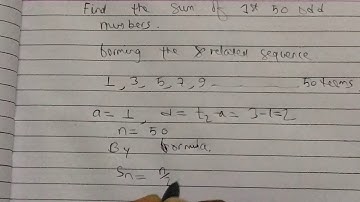 Find the sum of 1st 50 odd
numbers.
forming the related sequence
1, 3, 5, 7, 9 ........... 50 terms
a = 1, d = t2 - a = 3-1=2
n = 50
By formula.
Sn = n/